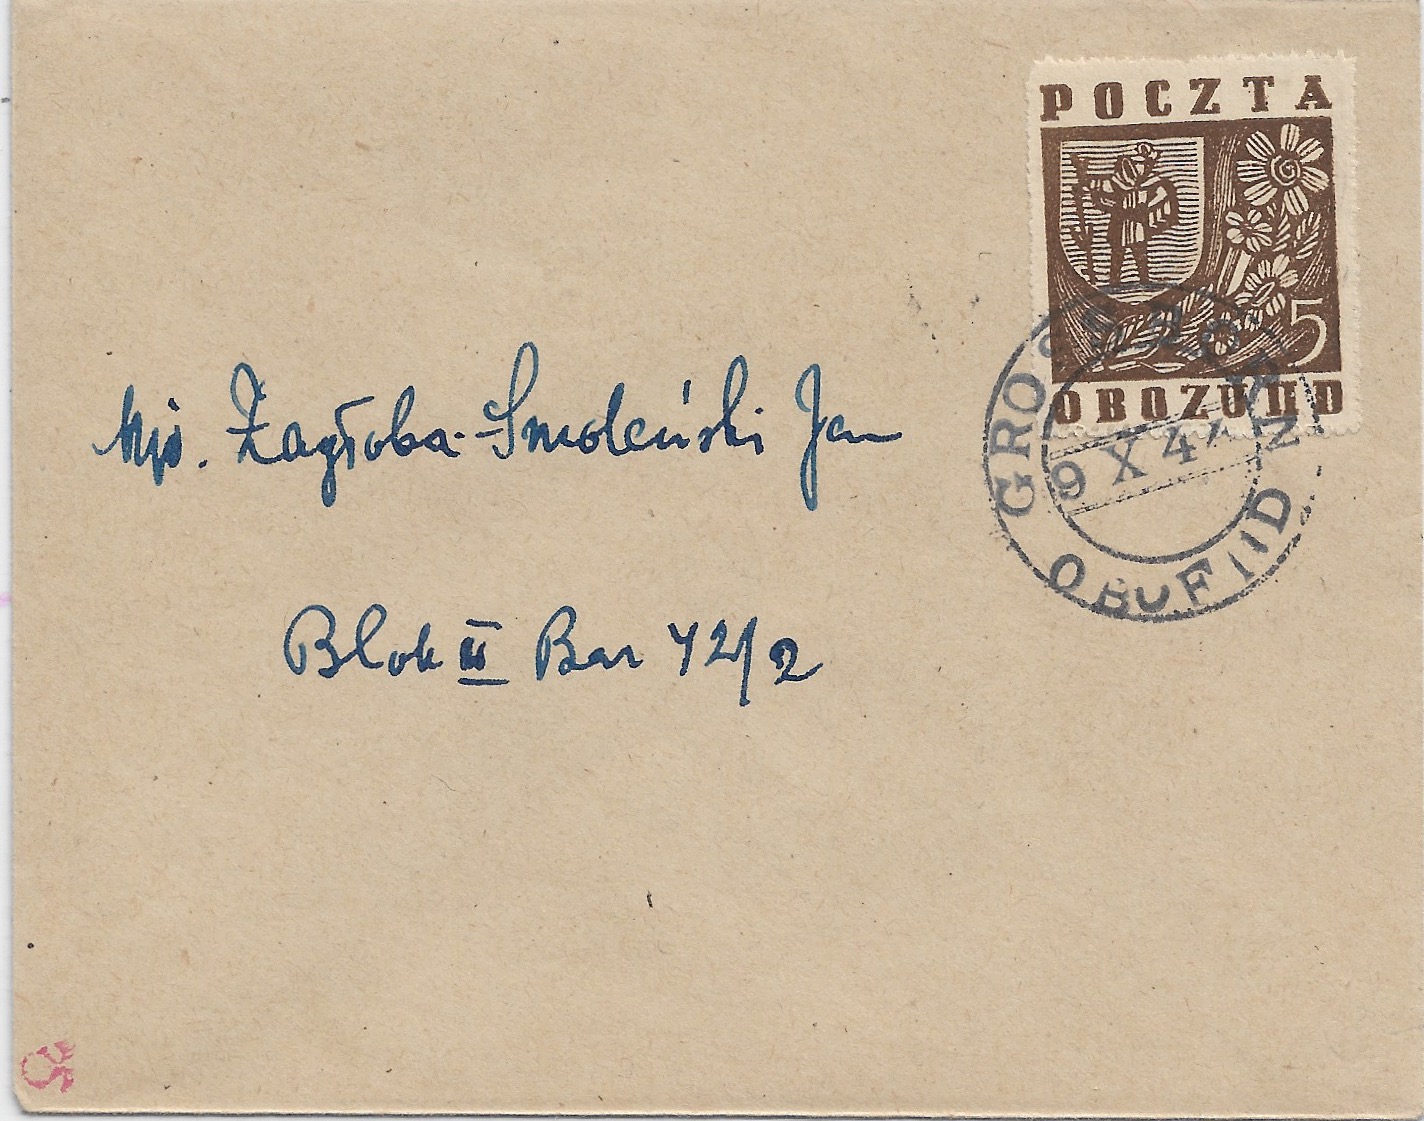 POCZTA
5
OBOZU II D
GROSS-BORN
9 X 44
OBOF II D
Mjr. Zagłoba-Smoleński Jan
Blok III Bar 42/2